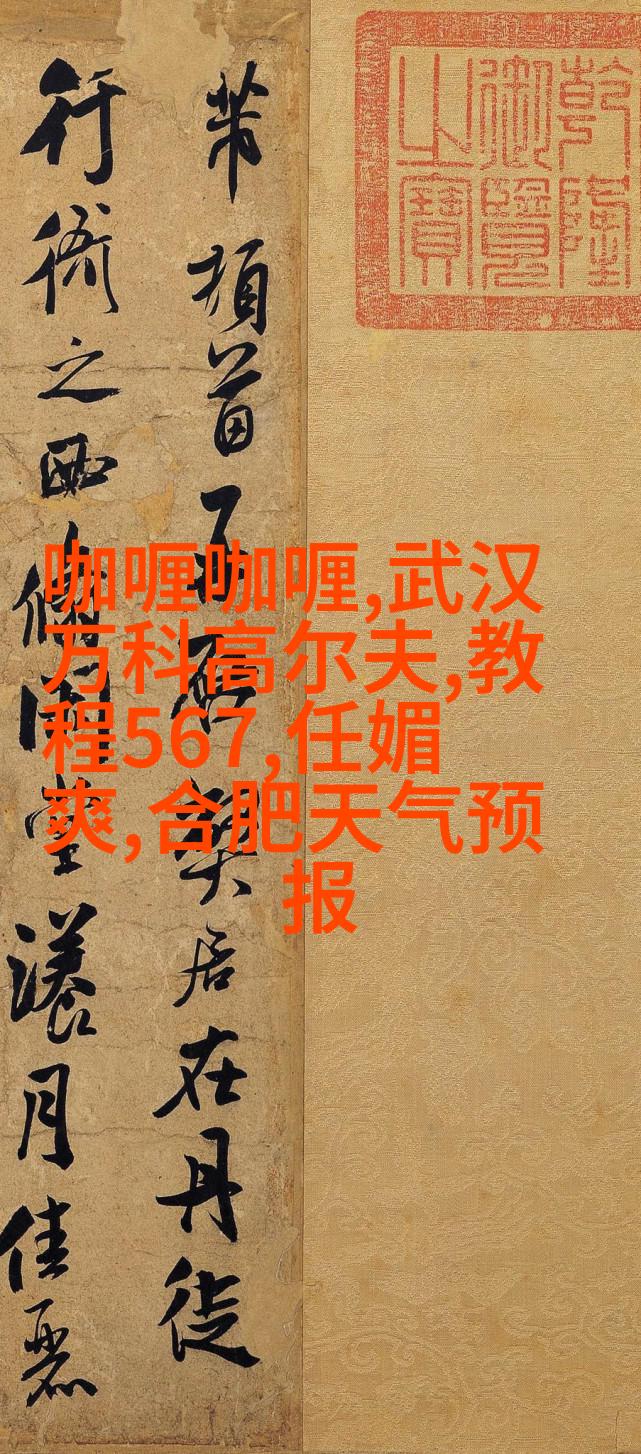 乾隆
御覽
之寶
芾頓首再啓弊居在丹徒
行衙之西翛閑堂漾月佳麗
咖喱咖喱,武汉
万科高尔夫,教
程567,任媚
爽,合肥天气预
报